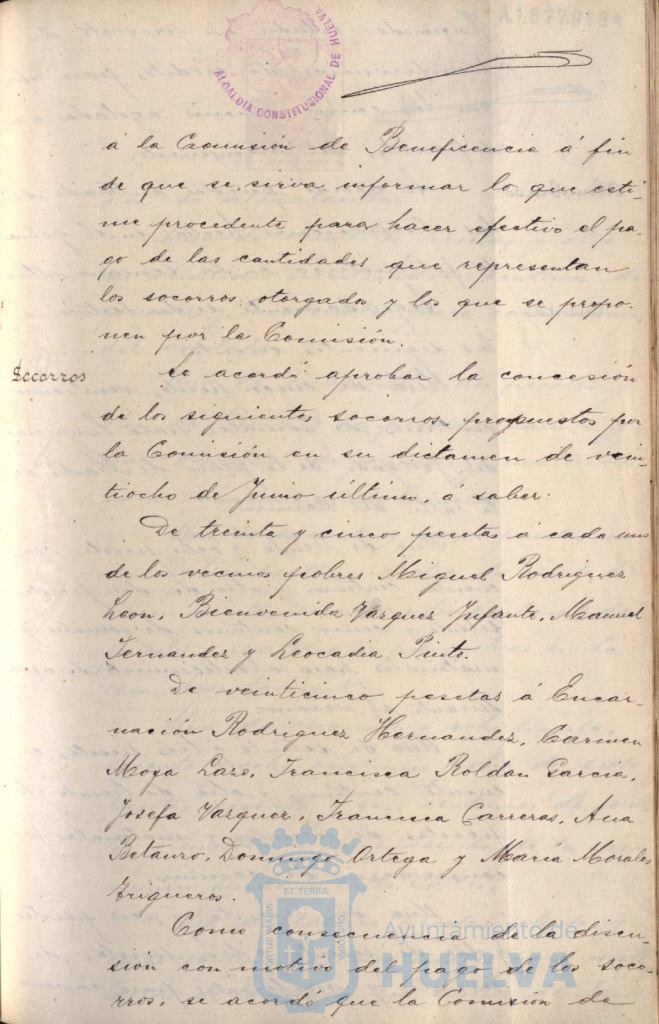 A1877918*
ALCALDIA CONSTITUCIONAL DE HUELVA
á la Comisión de Beneficencia á fin
de que se sirva informar lo que esti-
me procedente para hacer efectivo el pa-
go de las cantidades que representan
los socorros otorgados y los que se propo-
nen por la Comisión.
Socorros
Se acordó aprobar la concesión
de los siguientes socorros propuestos por
la Comisión en su dictamen de vein-
tiocho de Junio último, á saber:
De treinta y cinco pesetas á cada uno
de los vecinos pobres Miguel Rodriguez
Leon, Bienvenida Vazquez Infante, Manuel
Fernandez y Leocadia Pinto.
De veinticinco pesetas á Encar-
nación Rodriguez Hernandez, Carmen
Moya Lazo, Francisca Roldan Garcia,
Josefa Vazquez, Francisca Carreras, Ana
Betauro, Domingo Ortega y María Morales
Trigueros.
Como consecuencia de la discu-
sion con motivo del pago de los soco-
rros, se acordó que la Comisión de
ET TERRAE
PORTUS MARIS
CUSTODIA
Ayuntamiento de
HUELVA